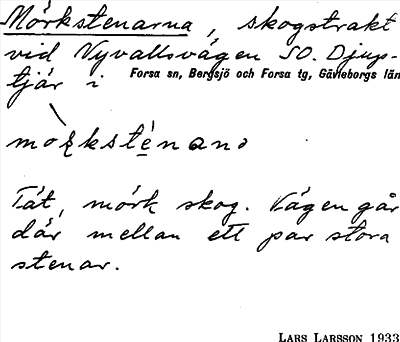 Mörkstenarna, skogstrakt
vid Vyvallsvägen SO. Djup-
tjär i Forsa sn, Bergsjö och Forsa tg, Gävleborgs län
Tät, mörk skog. Vägen går
där mellan ett par stora
stenar.
LARS LARSSON 1933